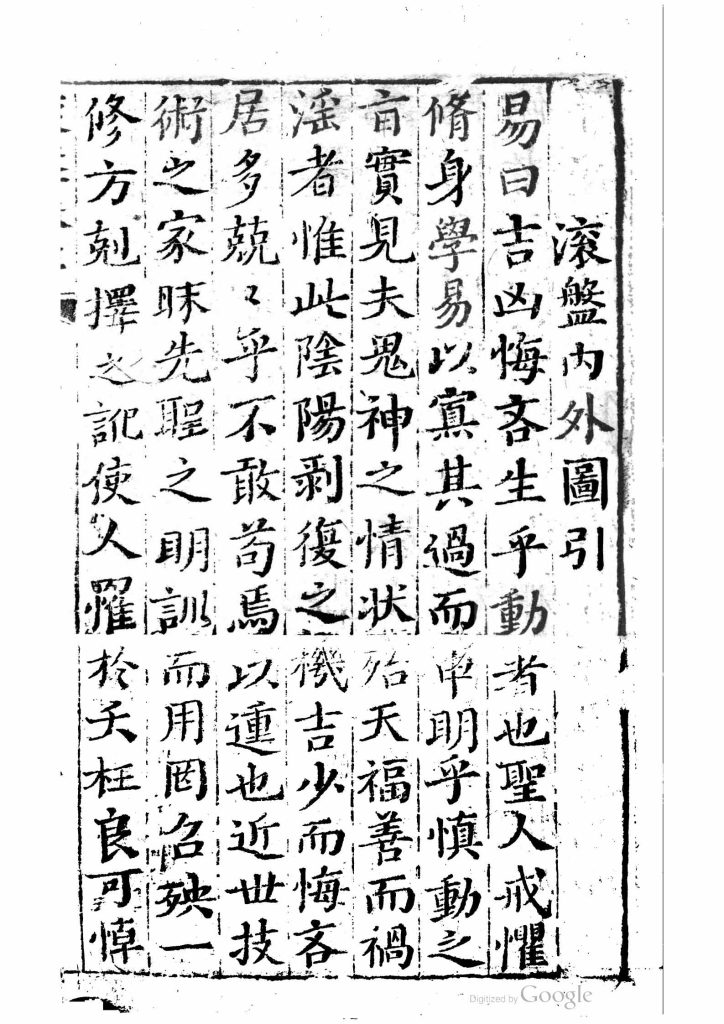 滾盤內外圖引
易曰吉凶悔吝生乎動者也聖人戒懼
脩身學易以寡其過而申明乎慎動之
旨實見夫鬼神之情狀殆天福善而禍
淫者惟此陰陽剥復之機吉少而悔吝
居多兢々乎不敢苟焉以運也近世技
術之家昧先聖之明訓而用罔召殃一
修方剋擇之訛使人罹於夭枉良可悼
Digitized by Google